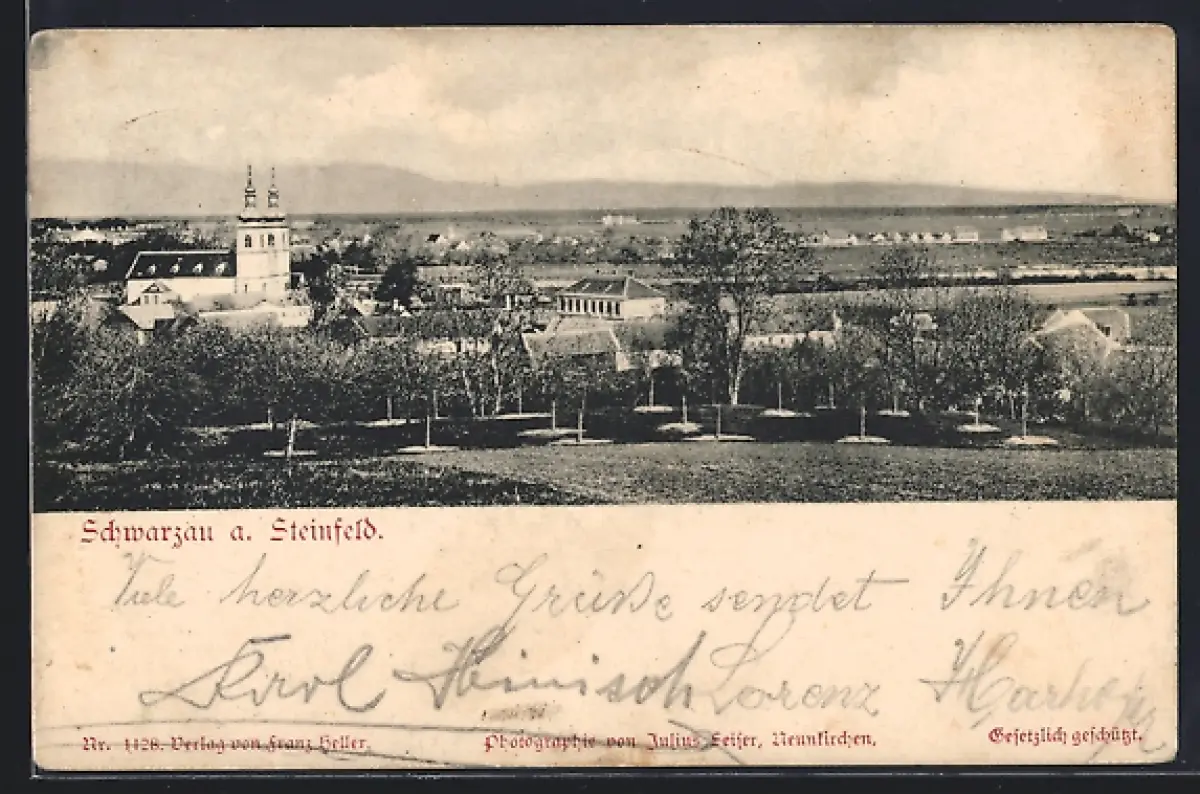 Schwarzau a. Steinfeld.
Viele herzliche Grüße sendet Ihnen
Karl Heinisch Lorenz
Nr. 1128. Verlag von Franz Heller. Photographie von Julius Seiser, Neunkirchen. Gesetzlich geschützt.